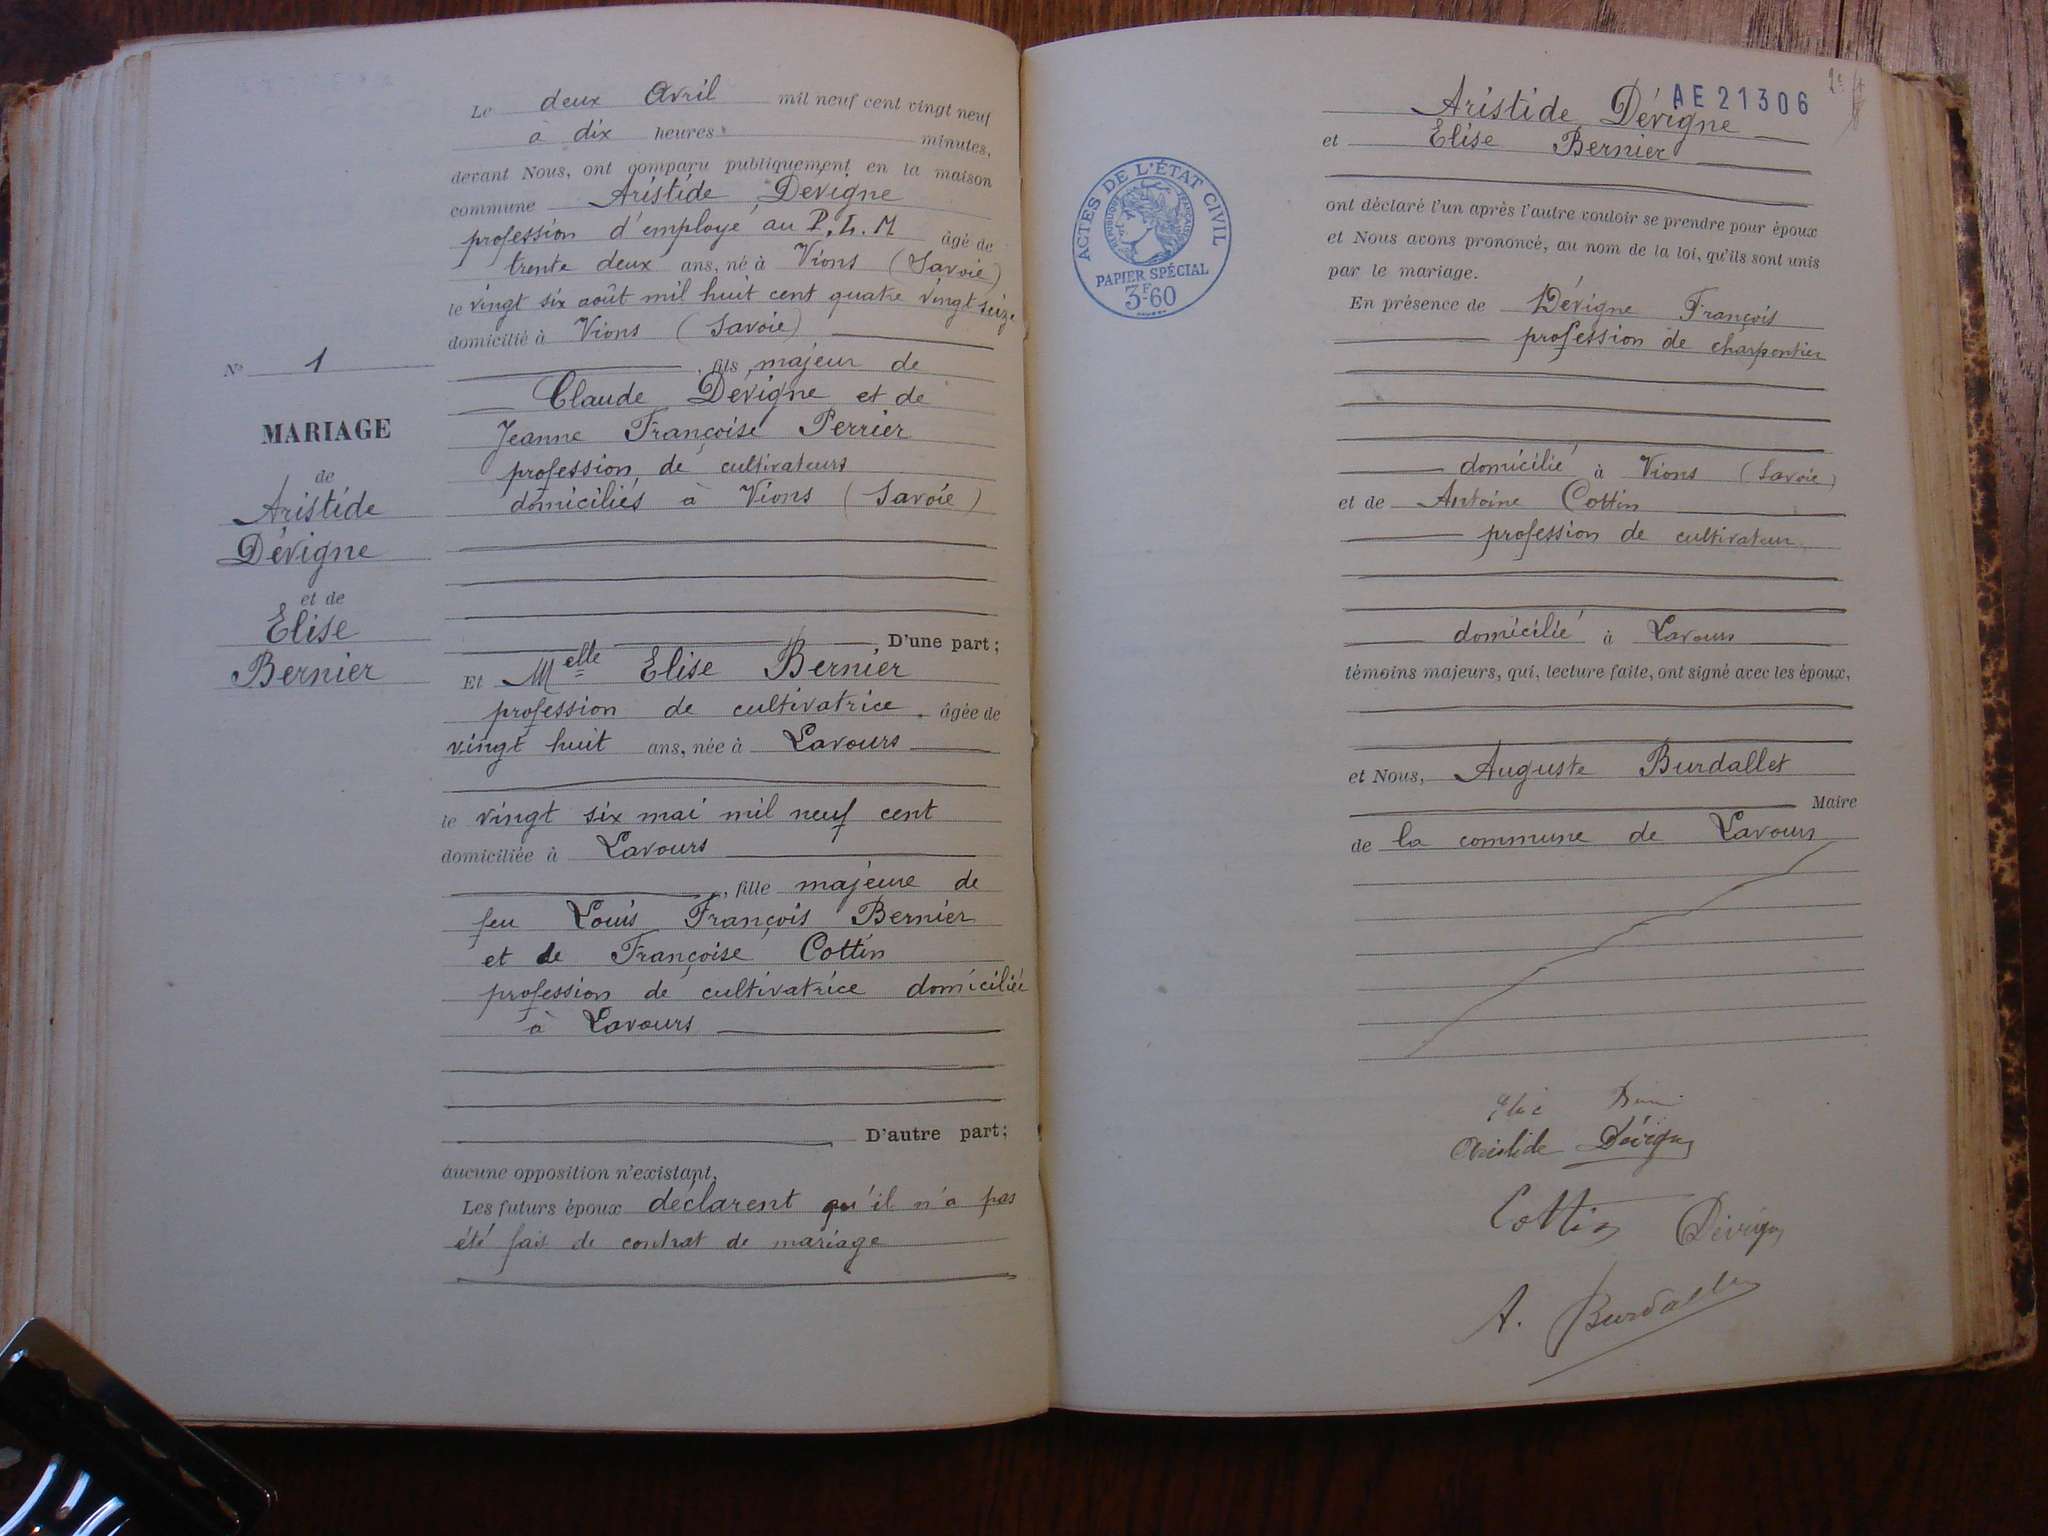 Le deux Avril mil neuf cent vingt neuf
à dix heures minutes,
devant Nous, ont comparu publiquement en la maison
commune Aristide Dévigne
profession d'employé au P.L.M âgé de
trente deux ans, né à Vions (Savoie)
le vingt six août mil huit cent quatre vingt seize
domicilié à Vions (Savoie)
, fils majeur de
Claude Dévigne et de
Jeanne Françoise Perrier
profession de cultivateurs
domiciliés à Vions (Savoie)
D'une part;
Et Melle Elise Bernier
profession de cultivatrice âgée de
vingt huit ans, née à Lavours
le vingt six mai mil neuf cent
domiciliée à Lavours
, fille majeure de
feu Louis François Bernier
et de Françoise Cottin
profession de cultivatrice domiciliée
à Lavours
D'autre part;
aucune opposition n'existant.
Les futurs époux déclarent qu'il n'a pas
été fait de contrat de mariage
No 1
MARIAGE
de
Aristide
Dévigne
et de
Elise
Bernier
AE21306
Aristide Dévigne
et Elise Bernier
ACTES DE L'ÉTAT CIVIL
RÉPUBLIQUE FRANÇAISE
PAPIER SPÉCIAL
3F60
ont déclaré l'un après l'autre vouloir se prendre pour époux
et Nous avons prononcé, au nom de la loi, qu'ils sont unis
par le mariage.
En présence de Dévigne François
profession de charpentier
domicilié à Vions (Savoie)
et de Antoine Cottin
profession de cultivateur
domicilié à Lavours
témoins majeurs, qui, lecture faite, ont signé avec les époux,
et Nous, Auguste Burdallet
Maire
de la commune de Lavours
Aristide Dévigne
Cottin Dévigne
A. Burdallet